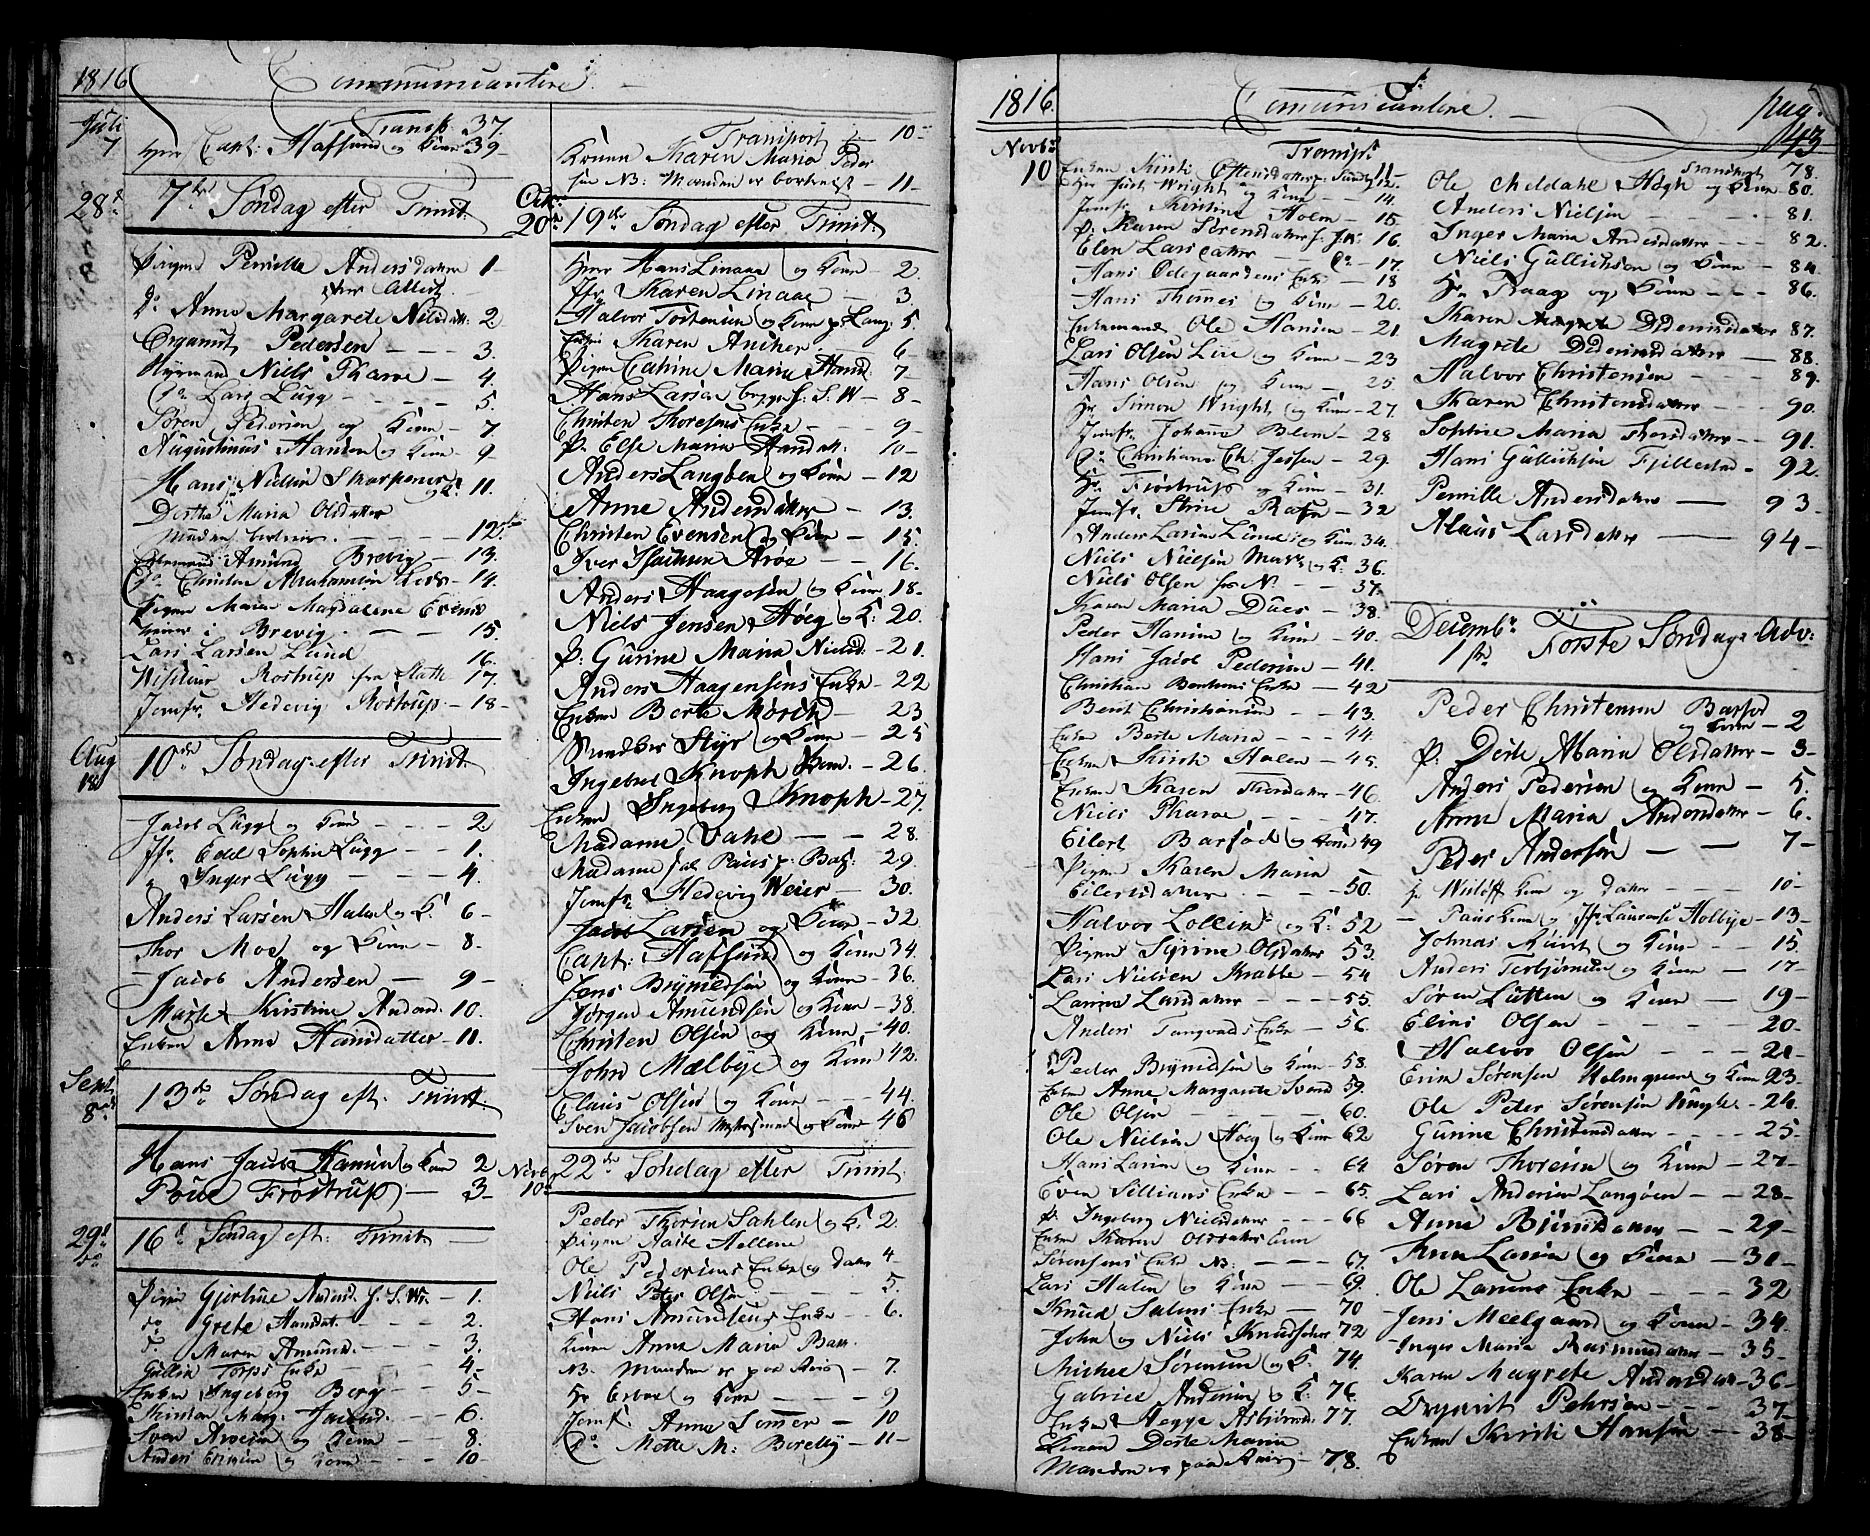 1816
Communicantere.
Juli 7
Transp. 37.
Herr Capt: Hafsund og Kone 39
28de
7de Søndag efter Trinit:
Pigen Pernille Andersdatter 1
do Anne Margarete Nilsdatt: 2
Organist Pedersen 3.
Niels Thrane 4.
do Lars Lugg 5.
Søren Pedersen og Kone 7
Augustinus Hansen og Kone 9
Hans Nielsen Skarpenes og K: 11.
Dorthe Maria Olsdatter
Manden bortreist 12
Amund Brevig 13.
do Christen Abrahamsen 14.
Pigen Maren Magdalene Evens
i Brevig. 15.
Lars Larsen Lund 16.
Rostrup fra Slatte 17.
Jomfr. Hedevig Rostrup 18
Aug 18
10de Søndag efter Trinit:
Jacob Lugg og Kone 2
Jfr. Edel Sophie Lugg 1.
Inger Lugg 4.
Anders Larsen Halse og K: 6
Thor Moe og Kone 8.
Jacob Andersen 9
Marte Kirstine Andersd. 10.
Enken Anne Hansdatter 11.
Sept. 8de
13de Søndag eft. Trinit:
Hans Jacob Hansen og Kone 2
Poul Frostrup 3.
29de
16de Søndag eft: Trinit:
Pigen Gjertrue Andersd. h. S. Wr. 1.
do Grete Hansdat. 2.
do Maren Amund. 3.
Gullin Torps Enke 4
Enken Ingeborg Berg 5
Kirsten Marg: 6.
Sven Aroesen og Kone 8.
Anders Ericsen og Kone 10
Transport 10
Konen Karen Maria Peder
sen NB: Manden er bortreist 11
Octr. 20de
19de Søndag efter Trinit:
Herr Hans Linaae og Kone 2.
Jfr. Karen Linaae 3.
Halvor Tostensen og Kone p. Lang: 5.
Enken Karen Ancher 6
Pigen Cathine Maria Hansd 7
Hans Larsen begge h. S. W 8
Christen Thoresens Enke 9
P. Else Maria Hansdatt: 10
Anders Langøen og Kone 12
Anne Andersdatter 13.
Christen Evensen og Kone 15.
Iver Isachsen Arøe 16.
Anders Haagesen og Kone 18
Niels Jensen Høeg og K: 20
P: Gurine Maria Nielsd: 21.
Anders Haagensens Enke 22
Enken Berte Morck 23
Styr og Kone 25
Ingebret Knoph 26.
Enken Ingeborg Knoph 27.
Madame Vahl 28.
Madame sal. Paus p: 29
Jomfr. Hedevig Weier 30.
Jacob Larsen og Kone 32
Capt: Hafsund og Kone 34
Jens Brynildsen og Kone 36.
Jørgen Amundsen og Kone 38
Christen Olsen og Kone 40.
John Mælbye og Kone 42.
Claus Olsen og Kone 44.
Sven Jacobsen og Kone 46
Novb. 10de
22de Søndag efter Trinit.
Peder Thorsen Sahlen og K: 2.
Pigen Aaste Hellene
Ole Pedersens Enke og datter 4
Niels Peter Olsen 5.
Hans Amundsens Enke 6.
Konen Anne Maria Bass
NB. Manden er paa Reise 7.
Hr og Kone 9
Jomf: Anne Sommer 10
do Mette M: Borelly 11
1816.
Comunicantere.
pag:
143
Novbr. 10
Transpt.
Enken Kirsti Ostensdatter 11
Hr. Just Wright og Kone 14.
Jomfr. Kirstine Holm 15
P: Karen Sørensdatter h. J. W: 16.
Elen Larsdatter do 17.
Hans Ødegaardens Enke 18
Hans Thomes og Kone 20.
Enkemand Ole Hansen 21
Lars Olsen Lie og Kone 23
Hans Olsen og Kone 25.
Hr. Simon Wright og Kone 27.
Jomfr. Johanne Blom 28
do Christiane Ch. Jessen 29.
Hr. Frostrup og Kone 31.
Jomfr. Stine Rafn 32
Anders Larsen Lund og Kone 34.
Niels Nielsen og K: 36.
Niels Olsen fra N. 37.
Karen Maria Dues 38.
Peder Hansen og Kone 40.
Hans Jacob Pedersen 41.
Christian Bentsens Enke 42
Berit Christiansen 43.
Enke Berte Maria 44.
Enken Kirsti Halen 45.
Enken Karen Thorsdatter 46.
Niels Thrane 47.
Eilert Barsod og Kone 49
Pigen Karen Maria
Eilertsdatter 50.
Halvor Lollin og K: 52
Pigen Syrine Olsdatter 53.
Lars Nielsen Krabbe 54
Larine Larsdatter 55.
Anders Tangvads Enke 56.
Peder Brynildsen og Kone 58.
Enken Anne Margarete Svend 59.
Ole Olsen 60.
Ole Nielsen Høeg og Kone 62
Hans Larsen og Kone 64
Even Sillians Enke 65.
P. Ingeborg Nielsdatter 66
Enken Karen Olsdatter
Sørensens Enke NB: 67.
Lars Halen og Kone 69.
Knud Salens Enke 70
John og Niels Knudsøner 72
Michel Sørensen og K. 74.
Gabriel Andersen og K: 76
Enken Aegge Asbiørnsd: 77.
Konen Dorte Maria
Manden er paa Reise 78.
Transport 78.
Ole Meldahl Høgh og Kone 80.
Anders Nielsen 81.
Inger Maria Andersdatter 82.
Niels Gullichsen og Kone 84
Hr. Praag og Kone 86.
Karen Magrete Didericksdatter 87.
Magrete Didericksdatter 88.
Halvor Christensen 89.
Karen Christensdatter 90.
Sophie Maria Thorsdatter 91.
Hans Gullichsen Fjellestad 92.
Pernille Andersdatter 93
Larsdatter 94
Decembr. 1ste
Første Søndag i Adv:
Peder Christensen Barsod
og Kone 2
P: Dorte Maria Olsdatter 3
Anders Pedersen og Kone 5.
Anne Maria Andersdatter 6.
Peder Andersen 7
Hr. Wulff Kone og datter 10
Paus Kone og Jfr. Laurense Holbye 13
Johnas Kiist og Kone 15
Anders Torbjørnsen og Kone 17
Søren Lütken og Kone 19
Elias Olsen 20
Halvor Olsen 21
Erik Sørensen Holmgreen og Kone 23
Ole Peter Sørensen 24.
Gurine Christensdatter 25
Søren Thoresen og Kone 27
Lars Andersen Langøen 28
Anne Bjørnsdatter 29
Larsen og Kone 31
Ole Larsens Enke 32
Jens Meelgaard og Kone 34
Inger Maria Rasmusdatter 35
Karen Magrete Andersdatter 36
Organist Pehrsen 37
Enken Kirsti Hansen 38